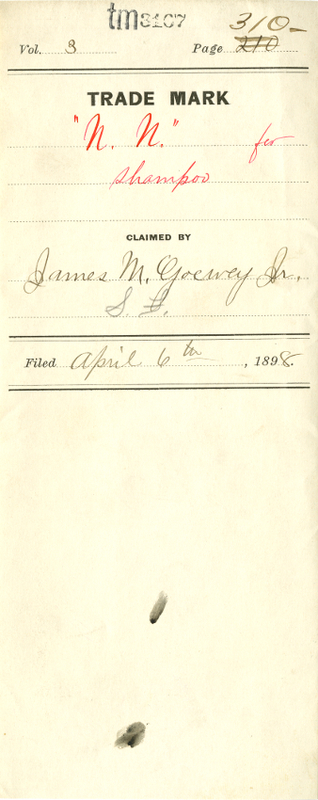 tm3107
310-
Vol. 3 Page 210
TRADE MARK
"N. N." for
shampoo
CLAIMED BY
James M. Goewey Jr.,
S. F.
Filed April 6th, 1898.